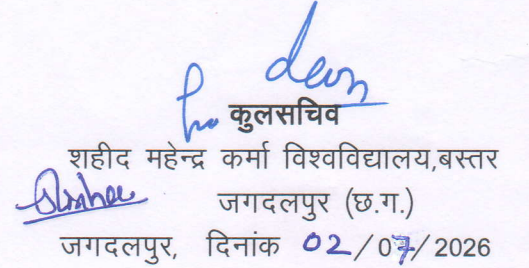 कुलसचिव
शहीद महेन्द्र कर्मा विश्वविद्यालय,बस्तर
जगदलपुर (छ.ग.)
जगदलपुर, दिनांक 02/07/2026